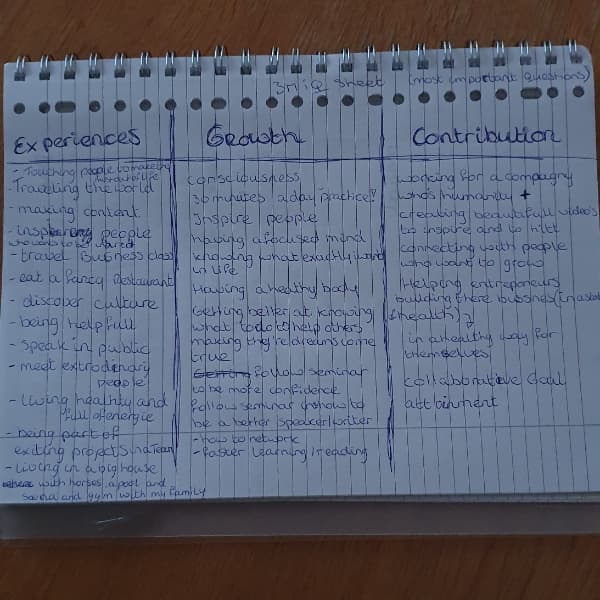 3MiQ Sheet (most important questions)
Experiences
- Touching people
- Traveling the world
- making content
- people
- travel Business class
- eat a fancy Restaurant
- discover culture
- being helpfull
- speak in public
- meet extrodinary
people
- living healthy and
full of energie
- being part of
exiting projects in a Team
- Living in a big house
with horses, a pool and
sauna and gym with my family
Growth
consciousness
30 minutes a day practice!
Inspire people
having a focused mind
knowing what exactly i want
in life
Having a healthy body
Getting better at knowing
what to do to help others
making they're dreams come
true
follow seminar
to be more confidence
follow seminar how to
be a better speaker/writer
- how to network
- faster learning/reading
Contribution
working for a compagny
who's humanity +
creating beautafull video's
to inspire and to
connecting with people
who want to grow
Helping entrepeneurs
building there bussines
(health)
in a healthy way for
themselves
collaborative Goal
attainment